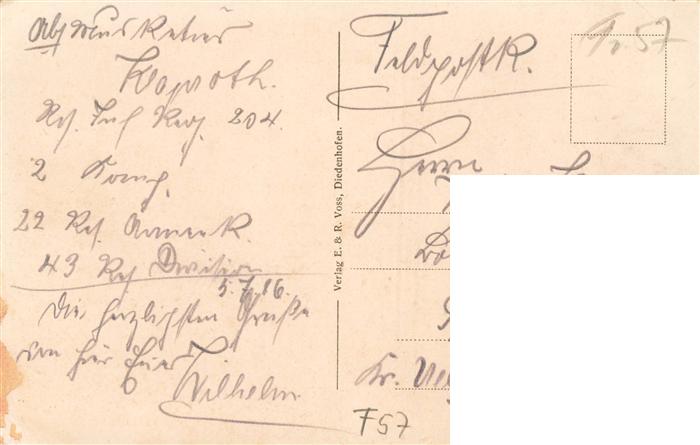 Abs Musketier
Kaproth.
Res. Inf Reg. 204.
2 Komp.
22 Res. Armee K.
43 Res Division
5.7.16.
Die herzligsten Grüße
von hier Euer
Wilhelm
Verlag E. & R. Voss, Diedenhofen.
Feldpostk.
57
Herrn
Kr.
F57